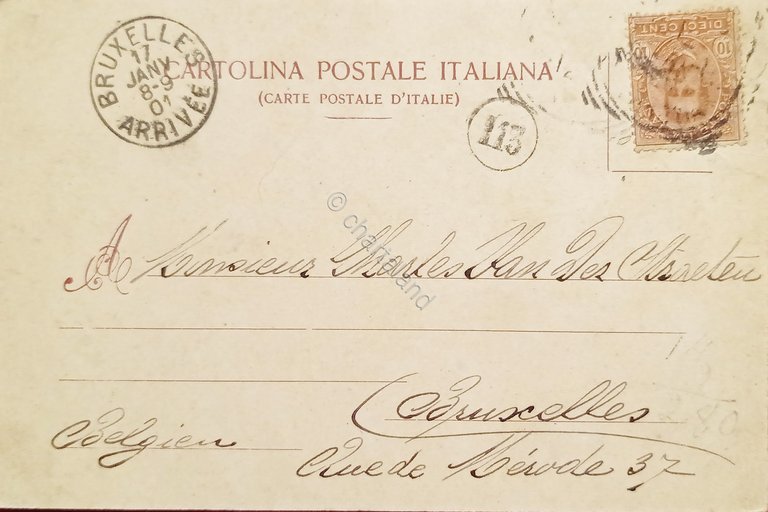 BRUXELLES
17
JANV
8-9
01
ARRIVÉE
DIECI CENT
10 10
CARTOLINA POSTALE ITALIANA
(CARTE POSTALE D'ITALIE)
113
© chartaland
A Monsieur Charles Van Der Straeten
Bruxelles
Belgien
Rue de Mérode 37